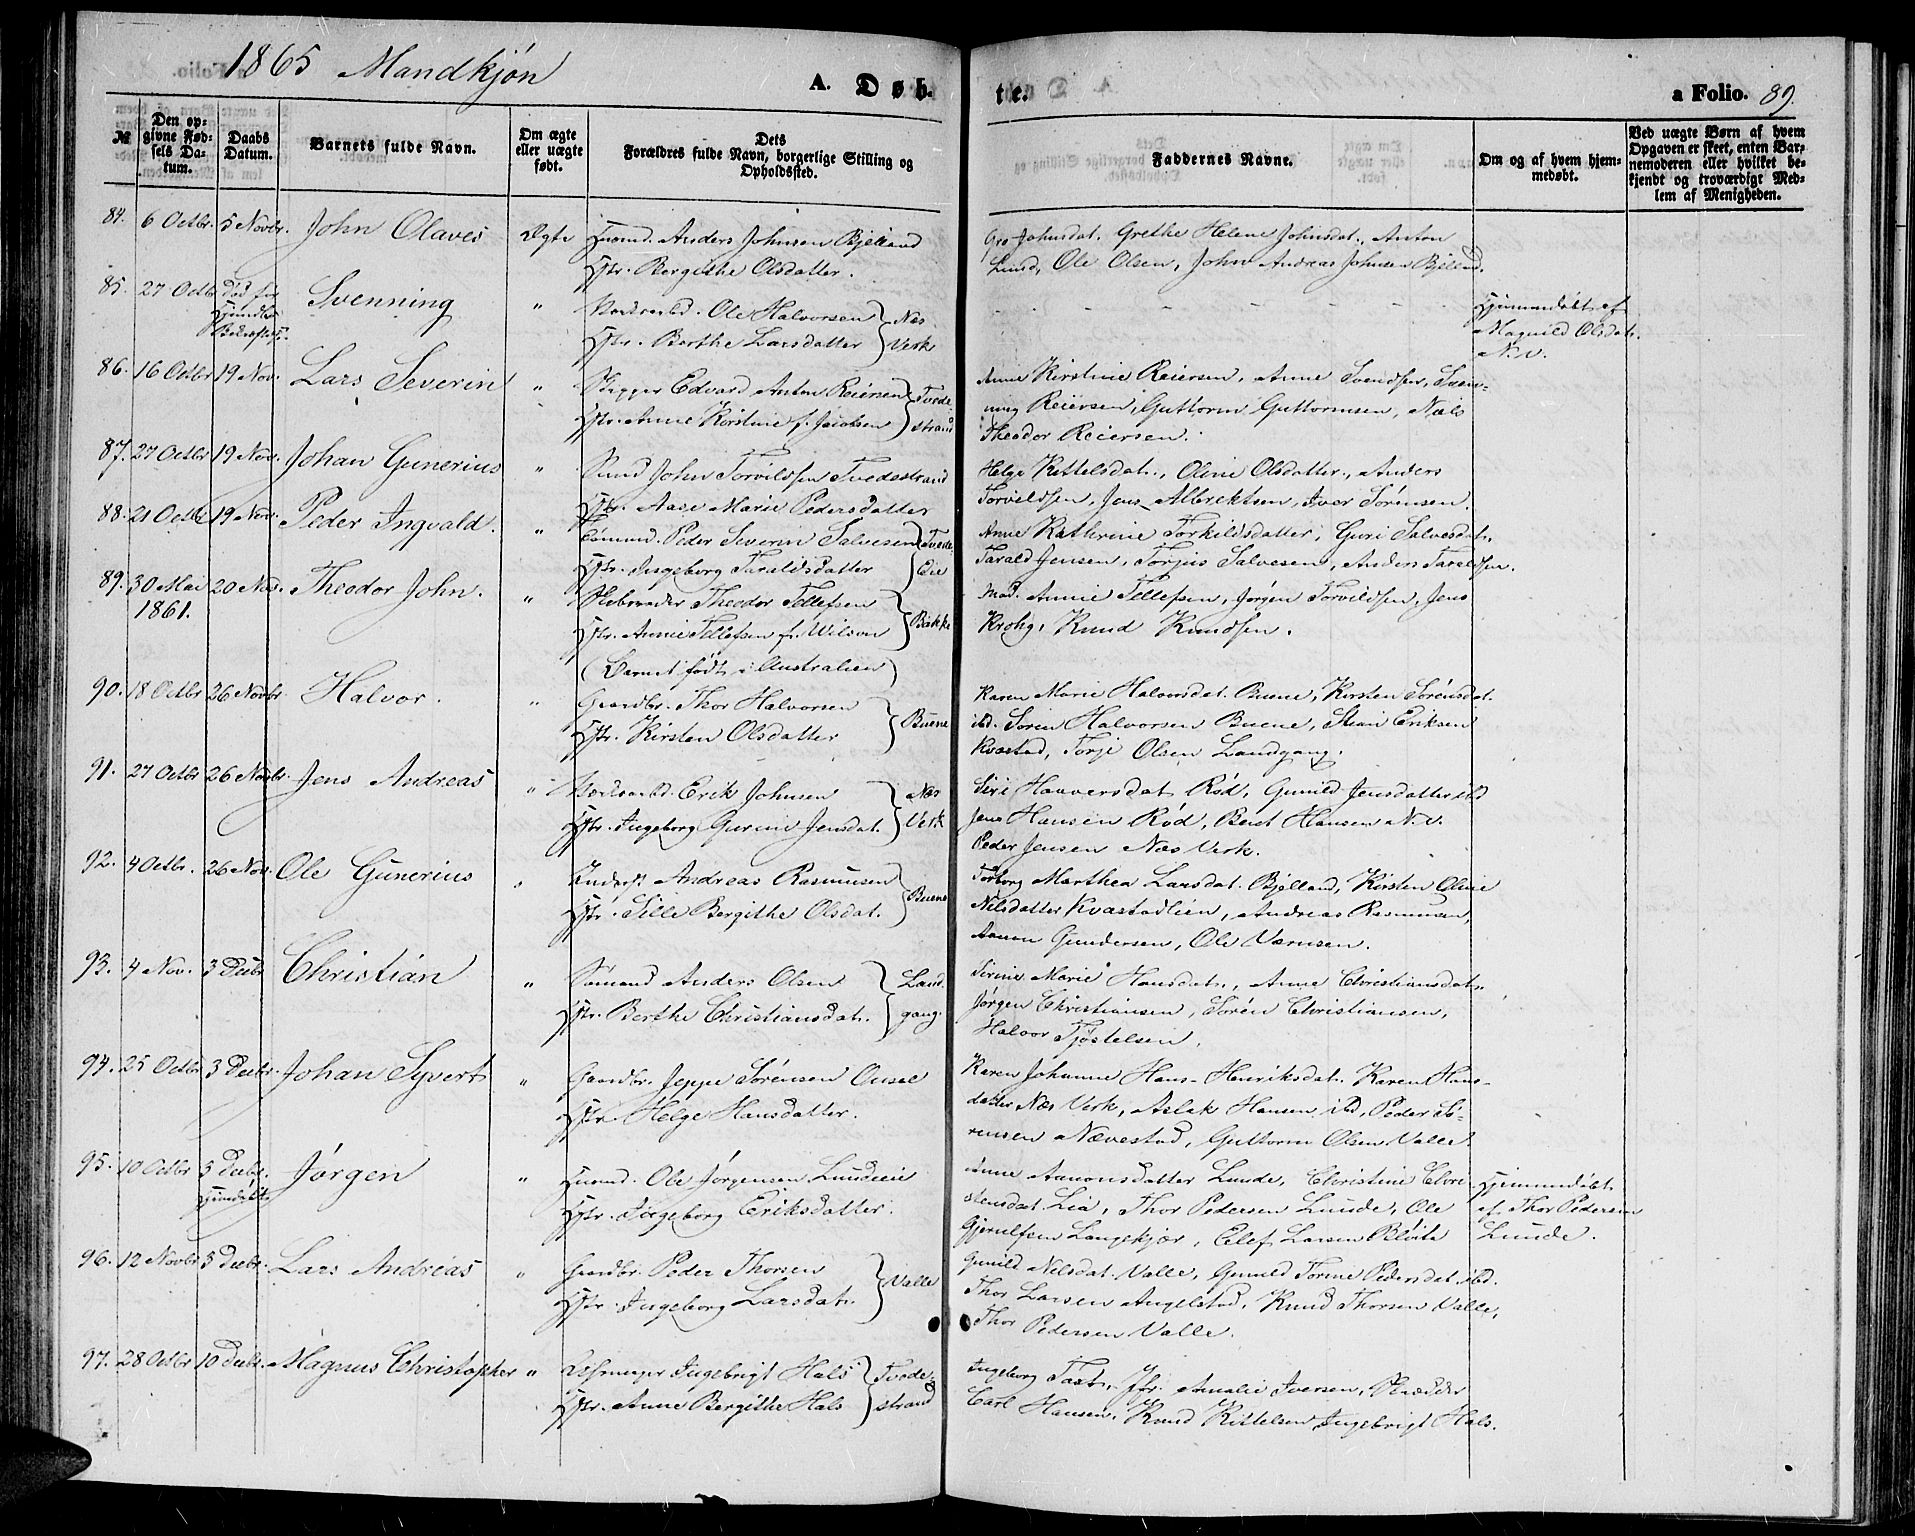 1865 Mandkjøn
A. Døb-
te.
a Folio. 89.
№
Den op-
givne Fød-
sels Da-
tum.
Daabs
Datum.
Barnets fulde Navn.
Om ægte
eller uægte
født.
Dets
Forældres fulde Navn, borgerlige Stilling og
Opholdssted.
Faddernes Navne.
Om og af hvem hjem-
medøbt.
Ved uægte Børn af hvem
Opgaven er skeet, enten Bar-
nemoderen eller hvilket be-
kjendt og troværdigt Med-
lem af Menigheden.
84. 6 Octbr. 5 Novbr. John Olaves Ægte Husmd. Anders Johnsen Bjelland
Hstr. Bergithe Olsdatter.
Gro Johnsdat. Grethe Helene Johnsdat., Anton
Lund, Ole Olsen, John Andreas Johnsen Bjelland.
85. 27 Octbr død før Svenning " Ole Halvorsen Næs
Hstr. Berthe Larsdatter Verk
Hjemmedøbt af
Magnild Olsdat.
N. V.
86. 16 Octbr 19 Nov. Lars Severin " Skipper Edvard Anton Reiersen Tvede
Hstr. Anne Kirstine f. Jacobsen strand
Anne Kirstine Reiersen, Anne Svendsen, Sven-
ning Reiersen, Guttorm Guttormsen, Niels
Theodor Reiersen.
87. 27 Octbr 19 Nov. Johan Gunerius " John Torvildsen Tvedestrand
Hstr. Aase Marie Pedersdatter
Helge Kittelsdat., Oline Olsdatter, Anders
Torvildsen, Jens Albrektsen, Iver Sørensen.
88. 21 Octbr 19 Nov. Peder Ingvald. " Peder Severin Salvesen Tvede
Hstr. Ingeborg Taraldsdatter Eie
Anne Kathrine Torkildsdatter, Guri Salvesdat.,
Tarald Jensen, Torjus Salvesen, Anders Taraldsen.
89. 30 Mai 20 Nov. Theodor John. " Skibsreder Theodor Tellefsen
1861. Hstr. Annie Tellefsen f. Wilson Bakke
(Barnet født i Australien)
Mad. Annie Tellefsen, Jørgen Torvildsen, Jens
Krohg, Knud Knudsen.
90. 18 Octbr 26 Novbr. Halvor. " Gaardbr. Thor Halvorsen
Hstr. Kirsten Olsdatter Buene
Karen Marie Halvorsdat. Buene, Kirsten Sørensdat.
ibd. Søren Halvorsen Buene, Stian Eriksen
Kvastad, Torje Olsen Landgang.
91. 27 Octbr 26 Novbr. Jens Andreas " Erik Johnsen Næs
Hstr. Ingeborg Gurine Jensdat. Verk
Siri Halversdat. Rød, Gunild Jensdatter ibd
Jens Hansen Rød, Berst Hansen N. V.
Peder Jensen Næs Verk.
92. 4 Octbr. 26 Nov. Ole Gunerius " Inderst Andreas Rasmusen
Hstr. Sille Bergithe Olsdat. Buene
Torborg Marthea Larsdat. Bjelland, Kirsten Oline
Nilsdatter Kvastadlien, Andreas Rasmusen,
Aanon Gundersen, Ole Varnsen.
93. 4 Nov. 3 Decbr Christian " Sømand Anders Olsen Land
Hstr. Berthe Christiansdat. gang.
Sirine Marie Hansdat., Anne Christiansdat.
Jørgen Christiansen, Søren Christiansen,
Halvor Tjøstelsen.
94. 25 Octbr 3 Decbr. Johan Syvert " Gaardbr. Jeppe Sørensen Ousel
Hstr. Helge Hansdatter.
Karen Johanne Hans-Henriksdat. Karen Hans-
datter Næs Verk, Aslak Hansen ibd, Peder Sø-
rensen Nævestad, Guttorm Olsen Valle.
95. 10 Octbr 3 Decbr. Jørgen " Husmd. Ole Jørgensen Lundeeie
Hjemdøbt Hstr. Ingeborg Eriksdatter.
Anne Aanonsdatter Lunde, Christine Chri-
stensdat. Lia, Thor Pedersen Lunde, Ole
Gjerulfsen Langekjær, Elef Larsen
Hjemmedøbt
af Thor Pedersen
Lunde.
96. 12 Novbr 3 Decbr. Lars Andreas " Gaardbr. Peder Thorsen
Hstr. Ingeborg Larsdat. Valle
Gunild Nilsdat. Valle, Gunild Torine Pedersdat. ibd.
Thor Larsen Angelstad, Knud Thorsen Valle,
Thor Pedersen Valle.
97. 28 Octbr 10 Decbr. Magnus Christopher " Ingebrigt Hals Tvede-
Hstr. Anne Bergithe Hals strand
Ingeborg Jfr. Amalie Iversen, Skrædder
Carl Hansen, Knud Kittelsen Ingebrigt Hals.